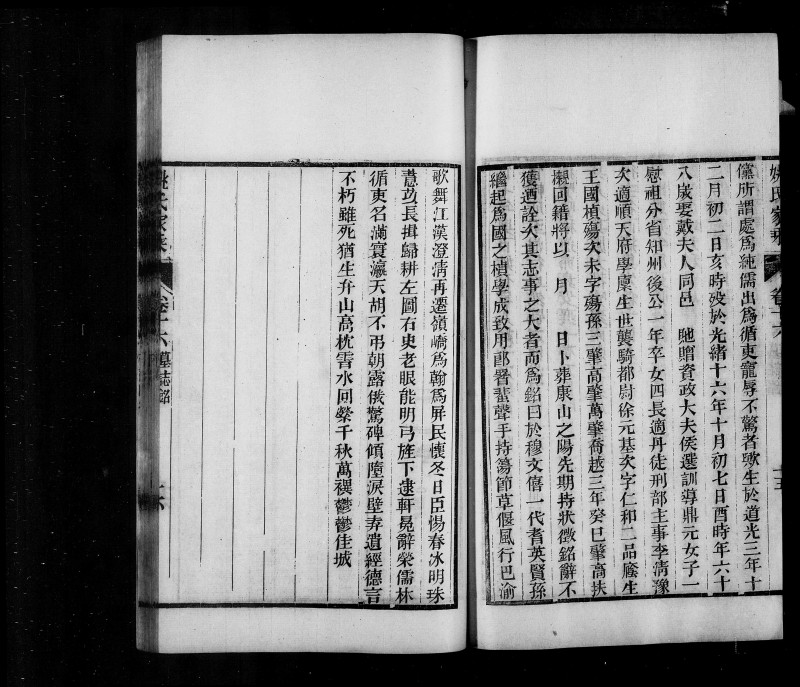 姚氏家乘 卷十六 十五
儻所謂處爲純儒出爲循吏寵辱不驚者歟生於道光三年十
二月初二日亥時歿於光緒十六年十月初七日酉時年六十
八歲娶戴夫人同邑 貤贈資政大夫侯選訓導鼎元女子一
慰祖分省知州後公一年卒女四長適丹徒刑部主事李清豫
次適順天府學廩生世襲騎都尉徐元基次字仁和二品廕生
王國楨殤次未字殤孫三肇高肇萬肇喬越三年癸巳肇高扶
櫬回籍將以 月 日卜葬康山之陽先期持狀徵銘辭不
獲遒詮次其志事之大者而爲銘曰於穆文僖一代耆英賢孫
繼起爲國之楨學成致用郎署蜚聲手持籌節草偃風行巴渝
歌舞江漢澄清再遷嶺嶠爲翰爲屏民懷冬日臣惕春冰明珠
薏苡長揖歸耕左圖右史老眼能明弓旌下逮軒冕辭榮儒林
循吏名滿寰瀛天胡不弔朝露俄驚碑傾墮淚壁弆遺經德言
不朽雖死猶生弁山高枕霅水回縈千秋萬禩鬱鬱佳城
姚氏家乘 卷十六 墓誌銘 十六